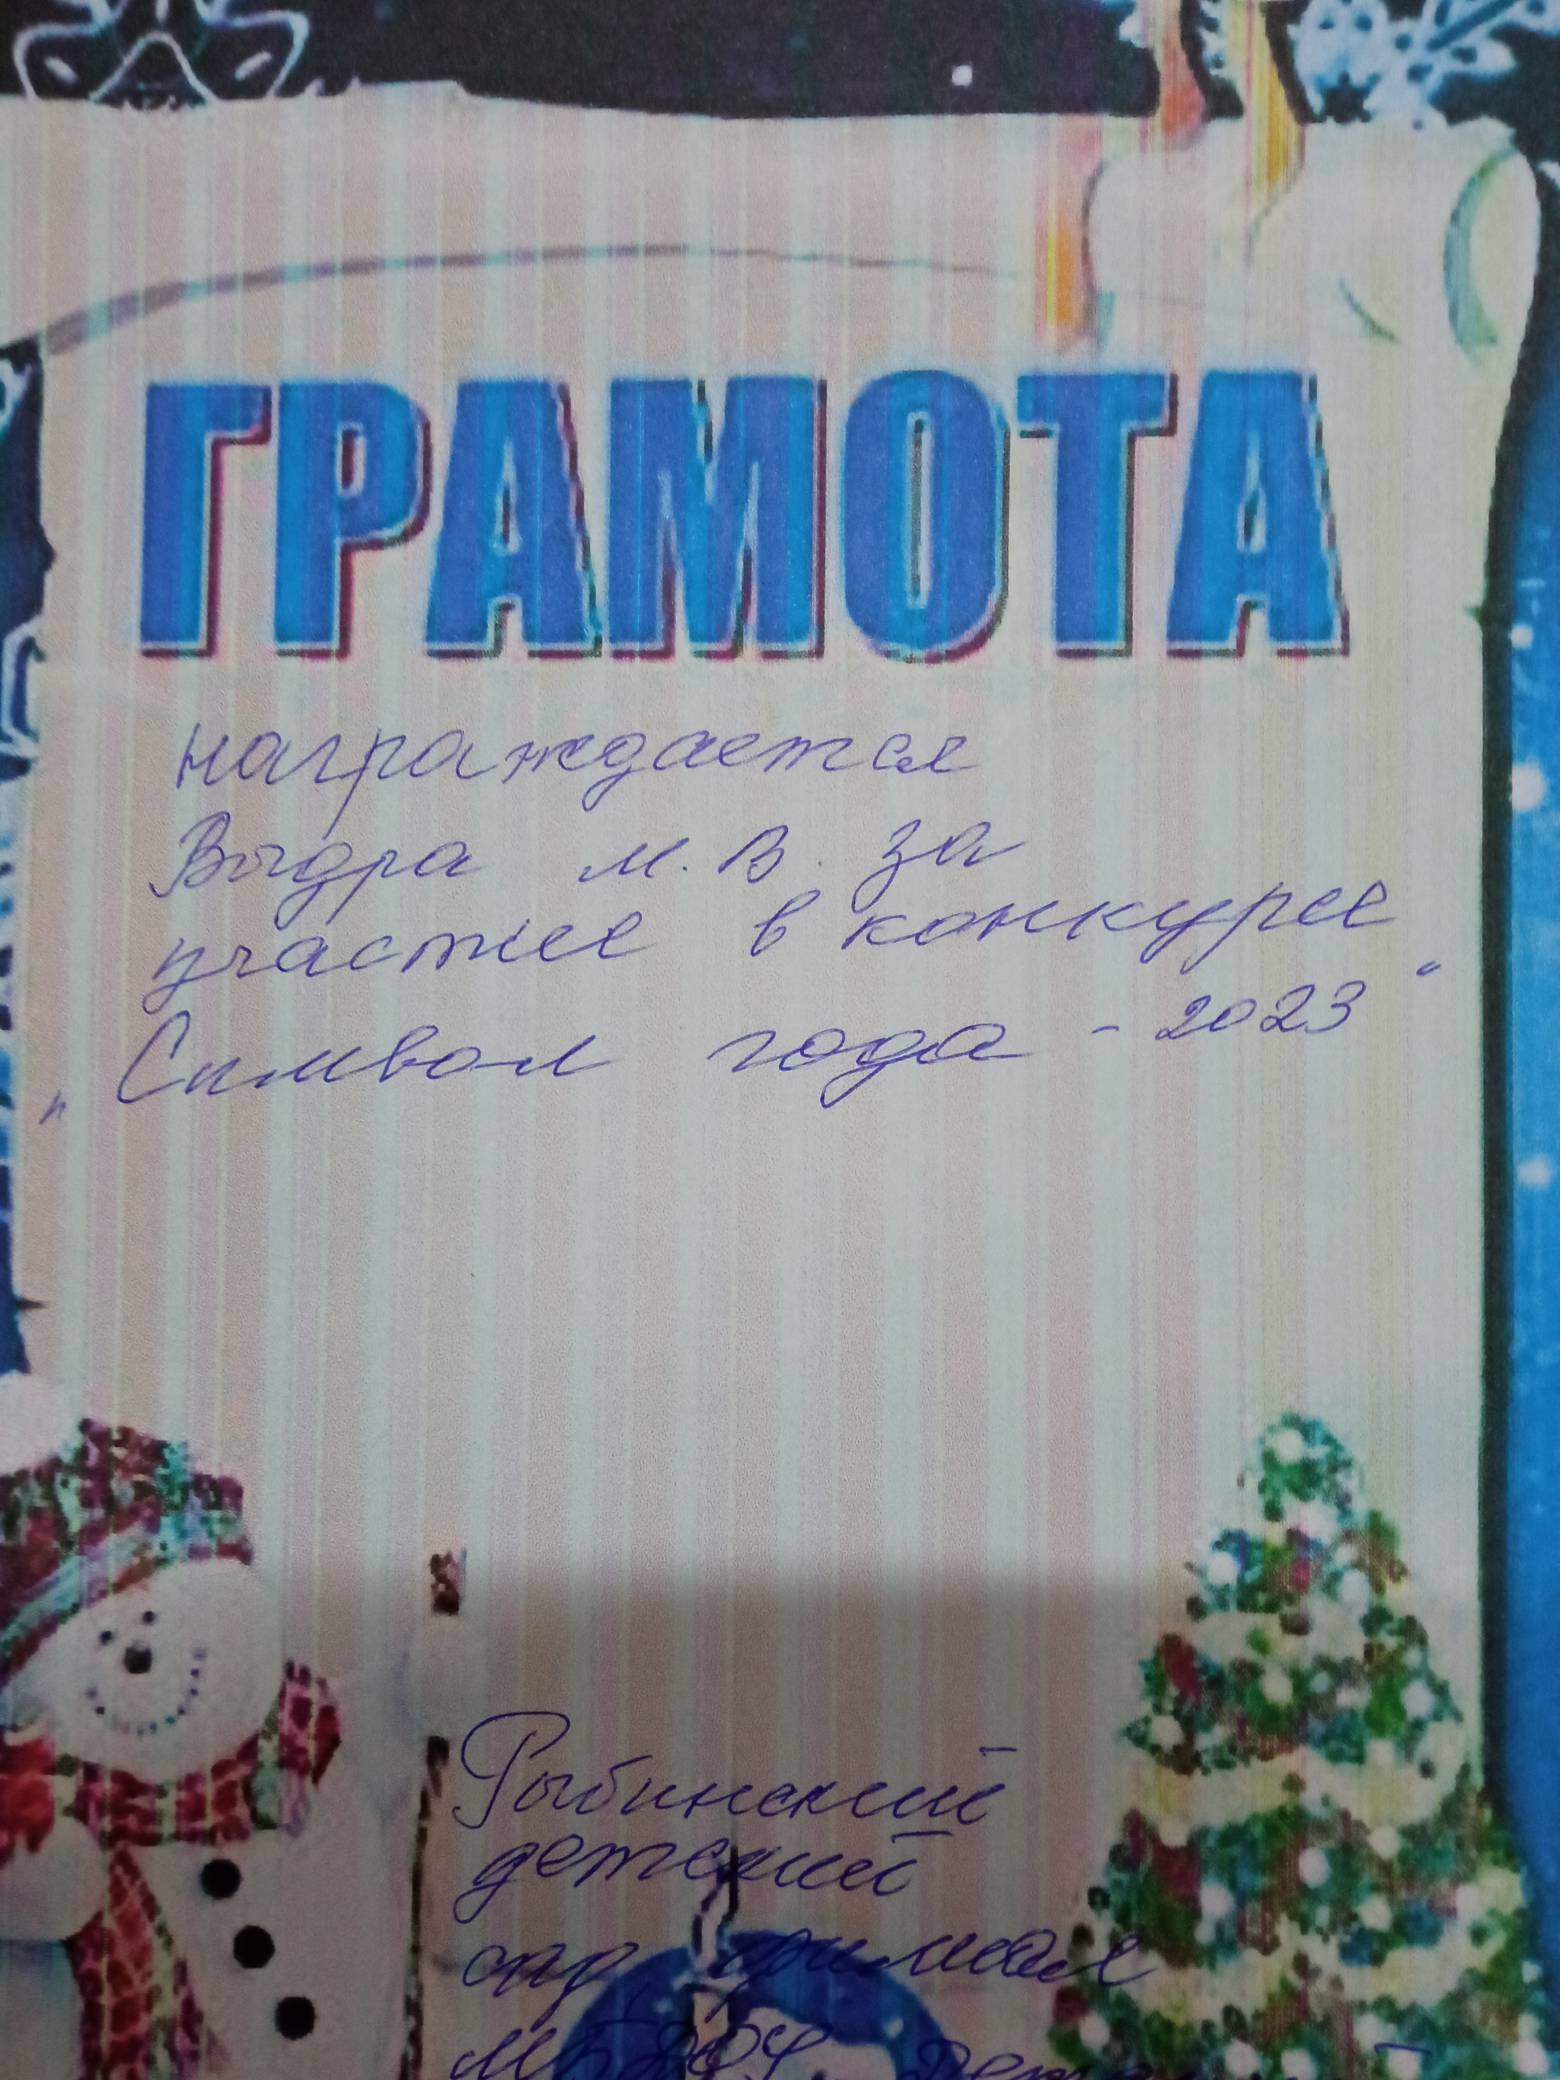 ГРАМОТА
награждается
Выдра М.В. за
участие в конкурсе
„Символ года - 2023"
Рыбинский
детский
сад, филиал
МБДОУ